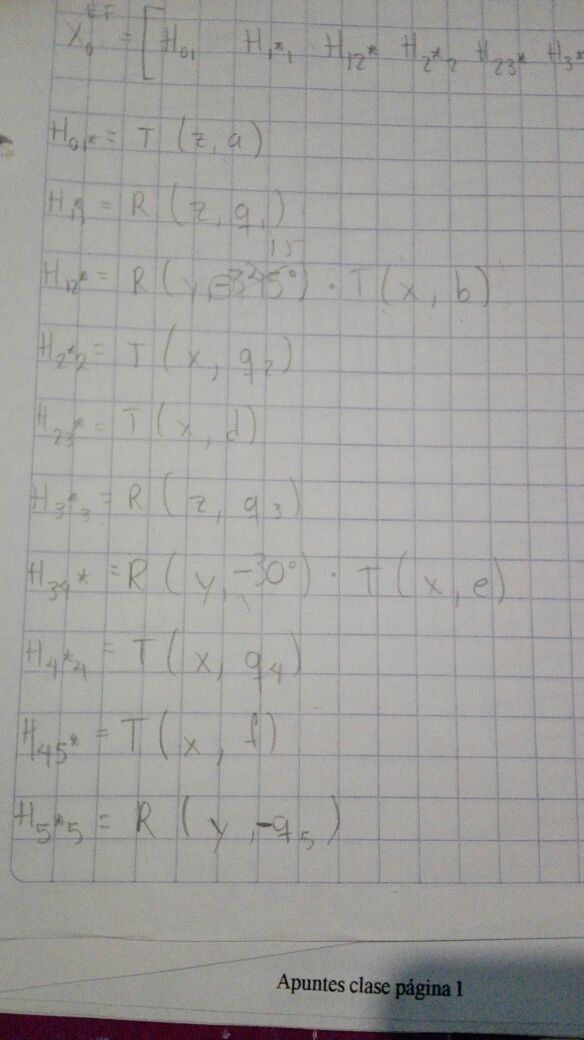 X₀ᴱᶠ = [H₀₁ H₁*₁ H₁₂* H₂*₂ H₂₃* H₃*
H₀₁* = T (z, a)
H₁*₁ = R (z, q₁)
15
H₁₂* = R (y, ) · T (x, b)
H₂*₂ = T (x, q₂)
H₂₃* = T (x, d)
H₃*₃ = R (z, q₃)
H₃₄* = R (y, -30°) · T (x, e)
H₄*₄ = T (x, q₄)
H₄₅* = T (x, f)
H₅*₅ = R (y, -q₅)
Apuntes clase página 1